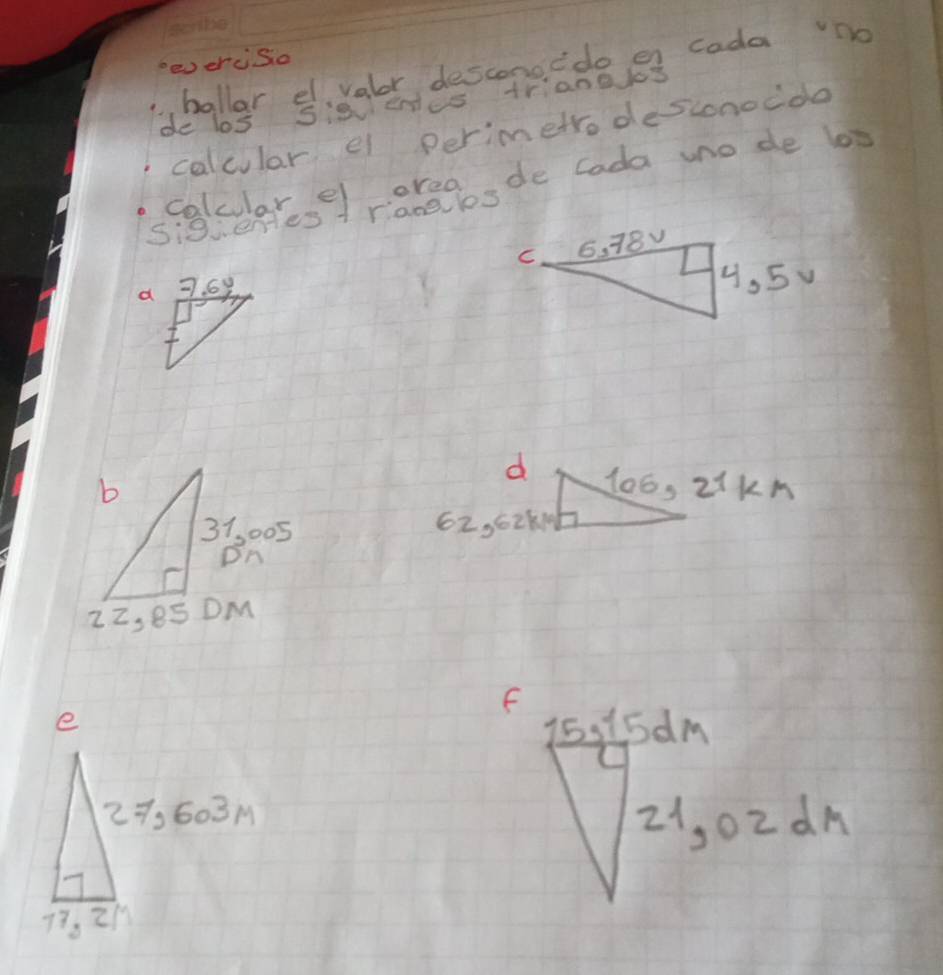 eserciso
. hallar el valor desconocido en cada uno
de los siguientes triangulos
. calcular el perimetro desconocido
. calcular el area de cada uno de los
siguientes triangulos
a 7.6
c 6,78v
4,5v
b
31,005
Dn
22,85 DM
d 106,21 km
62,62km
e
27,603M
17,2M
f
15,15dm
21,02 dm